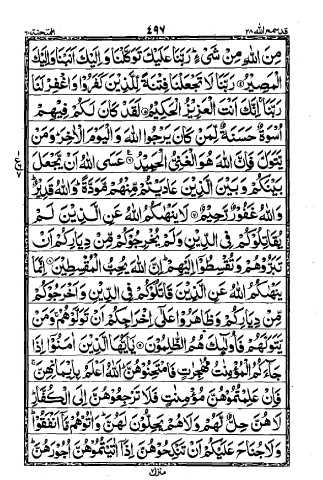 قد سمع الله ٢٨ ٤٩٧ الممتحنة ٦٠
مِنَ اللّٰهِ مِنْ شَىْءٍ ؕ رَبَّنَا عَلَيْكَ تَوَكَّلْنَا وَ اِلَيْكَ اَنَبْنَا وَ اِلَيْكَ
الْمَصِيْرُ۝ رَبَّنَا لَا تَجْعَلْنَا فِتْنَةً لِّلَّذِيْنَ كَفَرُوْا وَ اغْفِرْ لَنَا
رَبَّنَا ۚ اِنَّكَ اَنْتَ الْعَزِيْزُ الْحَكِيْمُ۝ لَقَدْ كَانَ لَكُمْ فِيْهِمْ
اُسْوَةٌ حَسَنَةٌ لِّمَنْ كَانَ يَرْجُوا اللّٰهَ وَ الْيَوْمَ الْاٰخِرَ ؕ وَ مَنْ
يَّتَوَلَّ فَاِنَّ اللّٰهَ هُوَ الْغَنِىُّ الْحَمِيْدُ۝ عَسَى اللّٰهُ اَنْ يَّجْعَلَ
بَيْنَكُمْ وَ بَيْنَ الَّذِيْنَ عَادَيْتُمْ مِّنْهُمْ مَّوَدَّةً ؕ وَ اللّٰهُ قَدِيْرٌ ؕ
وَ اللّٰهُ غَفُوْرٌ رَّحِيْمٌ۝ لَا يَنْهٰىكُمُ اللّٰهُ عَنِ الَّذِيْنَ لَمْ
يُقَاتِلُوْكُمْ فِى الدِّيْنِ وَ لَمْ يُخْرِجُوْكُمْ مِّنْ دِيَارِكُمْ اَنْ
تَبَرُّوْهُمْ وَ تُقْسِطُوْۤا اِلَيْهِمْ ؕ اِنَّ اللّٰهَ يُحِبُّ الْمُقْسِطِيْنَ۝ اِنَّمَا
يَنْهٰىكُمُ اللّٰهُ عَنِ الَّذِيْنَ قَاتَلُوْكُمْ فِى الدِّيْنِ وَ اَخْرَجُوْكُمْ
مِّنْ دِيَارِكُمْ وَ ظَاهَرُوْا عَلٰۤى اِخْرَاجِكُمْ اَنْ تَوَلَّوْهُمْ ۚ وَ مَنْ
يَّتَوَلَّهُمْ فَاُولٰٓئِكَ هُمُ الظّٰلِمُوْنَ۝ يٰۤاَيُّهَا الَّذِيْنَ اٰمَنُوْۤا اِذَا
جَآءَكُمُ الْمُؤْمِنٰتُ مُهٰجِرٰتٍ فَامْتَحِنُوْهُنَّ ؕ اَللّٰهُ اَعْلَمُ بِاِيْمَانِهِنَّ ۚ
فَاِنْ عَلِمْتُمُوْهُنَّ مُؤْمِنٰتٍ فَلَا تَرْجِعُوْهُنَّ اِلَى الْكُفَّارِ ؕ
لَا هُنَّ حِلٌّ لَّهُمْ وَ لَا هُمْ يَحِلُّوْنَ لَهُنَّ ؕ وَ اٰتُوْهُمْ مَّاۤ اَنْفَقُوْا ؕ
وَ لَا جُنَاحَ عَلَيْكُمْ اَنْ تَنْكِحُوْهُنَّ اِذَاۤ اٰتَيْتُمُوْهُنَّ اُجُوْرَهُنَّ ؕ